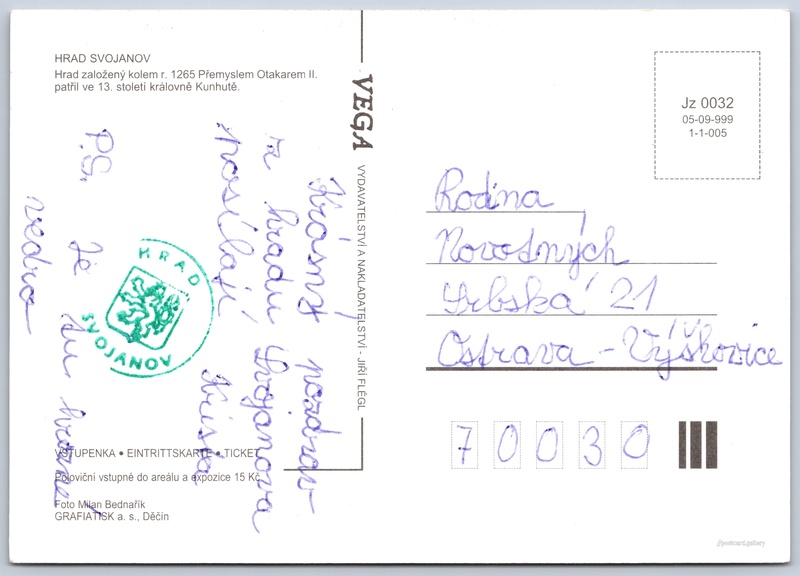 HRAD SVOJANOV
Hrad založený kolem r. 1265 Přemyslem Otakarem II.
patřil ve 13. století královně Kunhutě.
Krásný pozdrav
z hradu Svojanova
posílají
P.S. Je tu hrozné
vedro
HRAD
SVOJANOV
VSTUPENKA • EINTRITTSKARTE • TICKET
Poloviční vstupné do areálu a expozice 15 Kč
Foto Milan Bednařík
GRAFIATISK a. s., Děčín
VEGA VYDAVATELSTVÍ A NAKLADATELSTVÍ - JIŘÍ FLÉGL
Jz 0032
05-09-999
1-1-005
Rodina
Novotných
Srbská 21
Ostrava - Výškovice
70030
//postcard.gallery